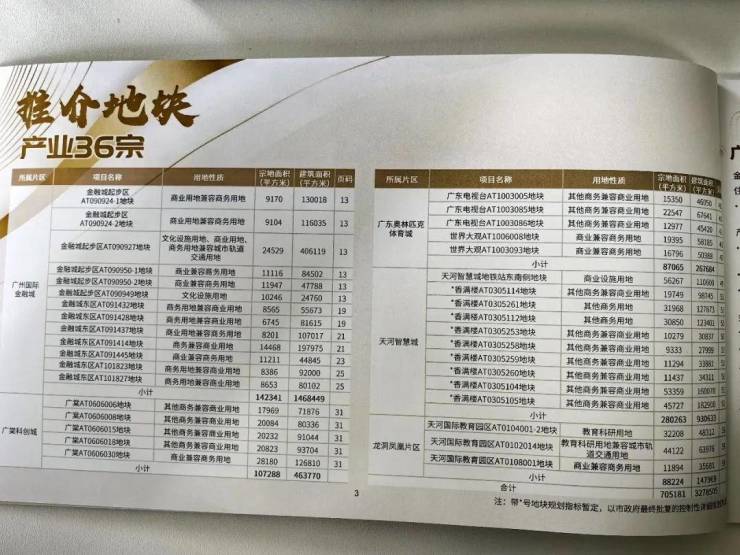 推介地块
产业36宗
所属片区 项目名称 用地性质 宗地面积(平方米) 建筑面积(平方米) 页码
广州国际金融城
金融城起步区AT090924-1地块 商业用地兼容商务用地 9170 130018 13
金融城起步区AT090924-2地块 商业用地兼容商务用地 9104 116035 13
金融城起步区AT090927地块 文化设施用地、商业用地、商务用地兼容城市轨道交通用地 24529 406119 13
金融城起步区AT090950-1地块 商业兼容商务用地 11116 84502 13
金融城起步区AT090950-2地块 商业兼容商务用地 11947 47788 13
金融城起步区AT090949地块 文化设施用地 10246 24760 13
金融城起步区AT091432地块 商务用地兼容商业用地 8565 55673 19
金融城起步区AT091428地块 商务用地兼容商业用地 6745 81615 19
金融城起步区AT091437地块 商业用地兼容商务用地 8201 107017 21
金融城起步区AT091414地块 商务兼容商业用地 14468 197975 21
金融城起步区AT091445地块 商业兼容商务用地 11211 44845 23
金融城起步区AT101823地块 商务用地兼容商业用地 8386 92000 25
金融城起步区AT101827地块 商务用地兼容商业用地 8653 80102 25
小计 142341 1468449
广棠科创城
广棠AT0606006地块 其他商务兼容商业用地 17969 71876 31
广棠AT0606008地块 其他商务兼容商业用地 20084 80336 31
广棠AT0606015地块 其他商务兼容商业用地 20232 91044 31
广棠AT0606018地块 其他商务兼容商业用地 20823 93704 31
广棠AT0606030地块 商业兼容商务用地 28180 126810 31
小计 107288 463770
所属片区 项目名称 用地性质 宗地面积(平方米) 建筑面积(平方米)
广东奥林匹克体育城
广东电视台AT1003005地块 其他商务兼容商业用地 15350 46050
广东电视台AT1003085地块 其他商务兼容商业用地 22547 67641
广东电视台AT1003086地块 其他商务兼容商业用地 12977 45420
世界大观AT1006008地块 商业兼容商务用地 19395 58185
世界大观AT1003093地块 商业兼容商务用地 16796 50388
小计 87065 267684
天河智慧城
天河智慧城地铁站东南侧地块 商业设施用地 56267 110600
*香满楼AT0305114地块 其他商务兼容商业用地 19749 98745
*香满楼AT0305261地块 其他商务用地 31968 127873
*香满楼AT0305112地块 其他商务用地 30850 123401
*香满楼AT0305253地块 其他商务兼容商业用地 10279 30837
*香满楼AT0305258地块 其他商务兼容商业用地 9333 27999
*香满楼AT0305259地块 其他商务兼容商业用地 11294 33881
*香满楼AT0305260地块 其他商务兼容商业用地 11437 34311
*香满楼AT0305104地块 其他商务兼容商业用地 53359 160078
*香满楼AT0305105地块 其他商务兼容商业用地 45727 182908
小计 280263 930633
龙洞凤凰片区
天河国际教育园区AT0104001-2地块 教育科研用地 32208 48312
天河国际教育园区AT0102014地块 教育科研用地兼容城市轨道交通用地 44122 63976
天河国际教育园区AT0108001地块 商业兼容商务用地 11894 35681
小计 88224 147969
合计 705181 3278505
注：带*号地块规划指标暂定，以市政府最终批复的控制性详细规划
3